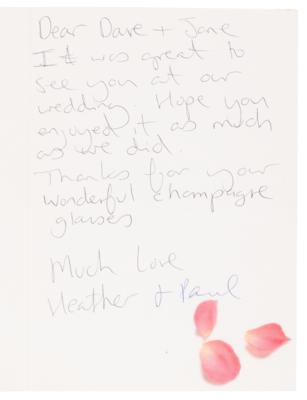 Dear Dave + Jane
It was great to
see you at our
wedding. Hope you
enjoyed it as much
as we did.
Thanks for your
wonderful champagne
glasses
Much Love
Heather + Paul